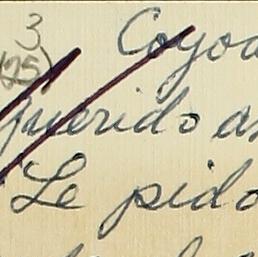 3
(25)
Coyoa
Querido a
Le pido